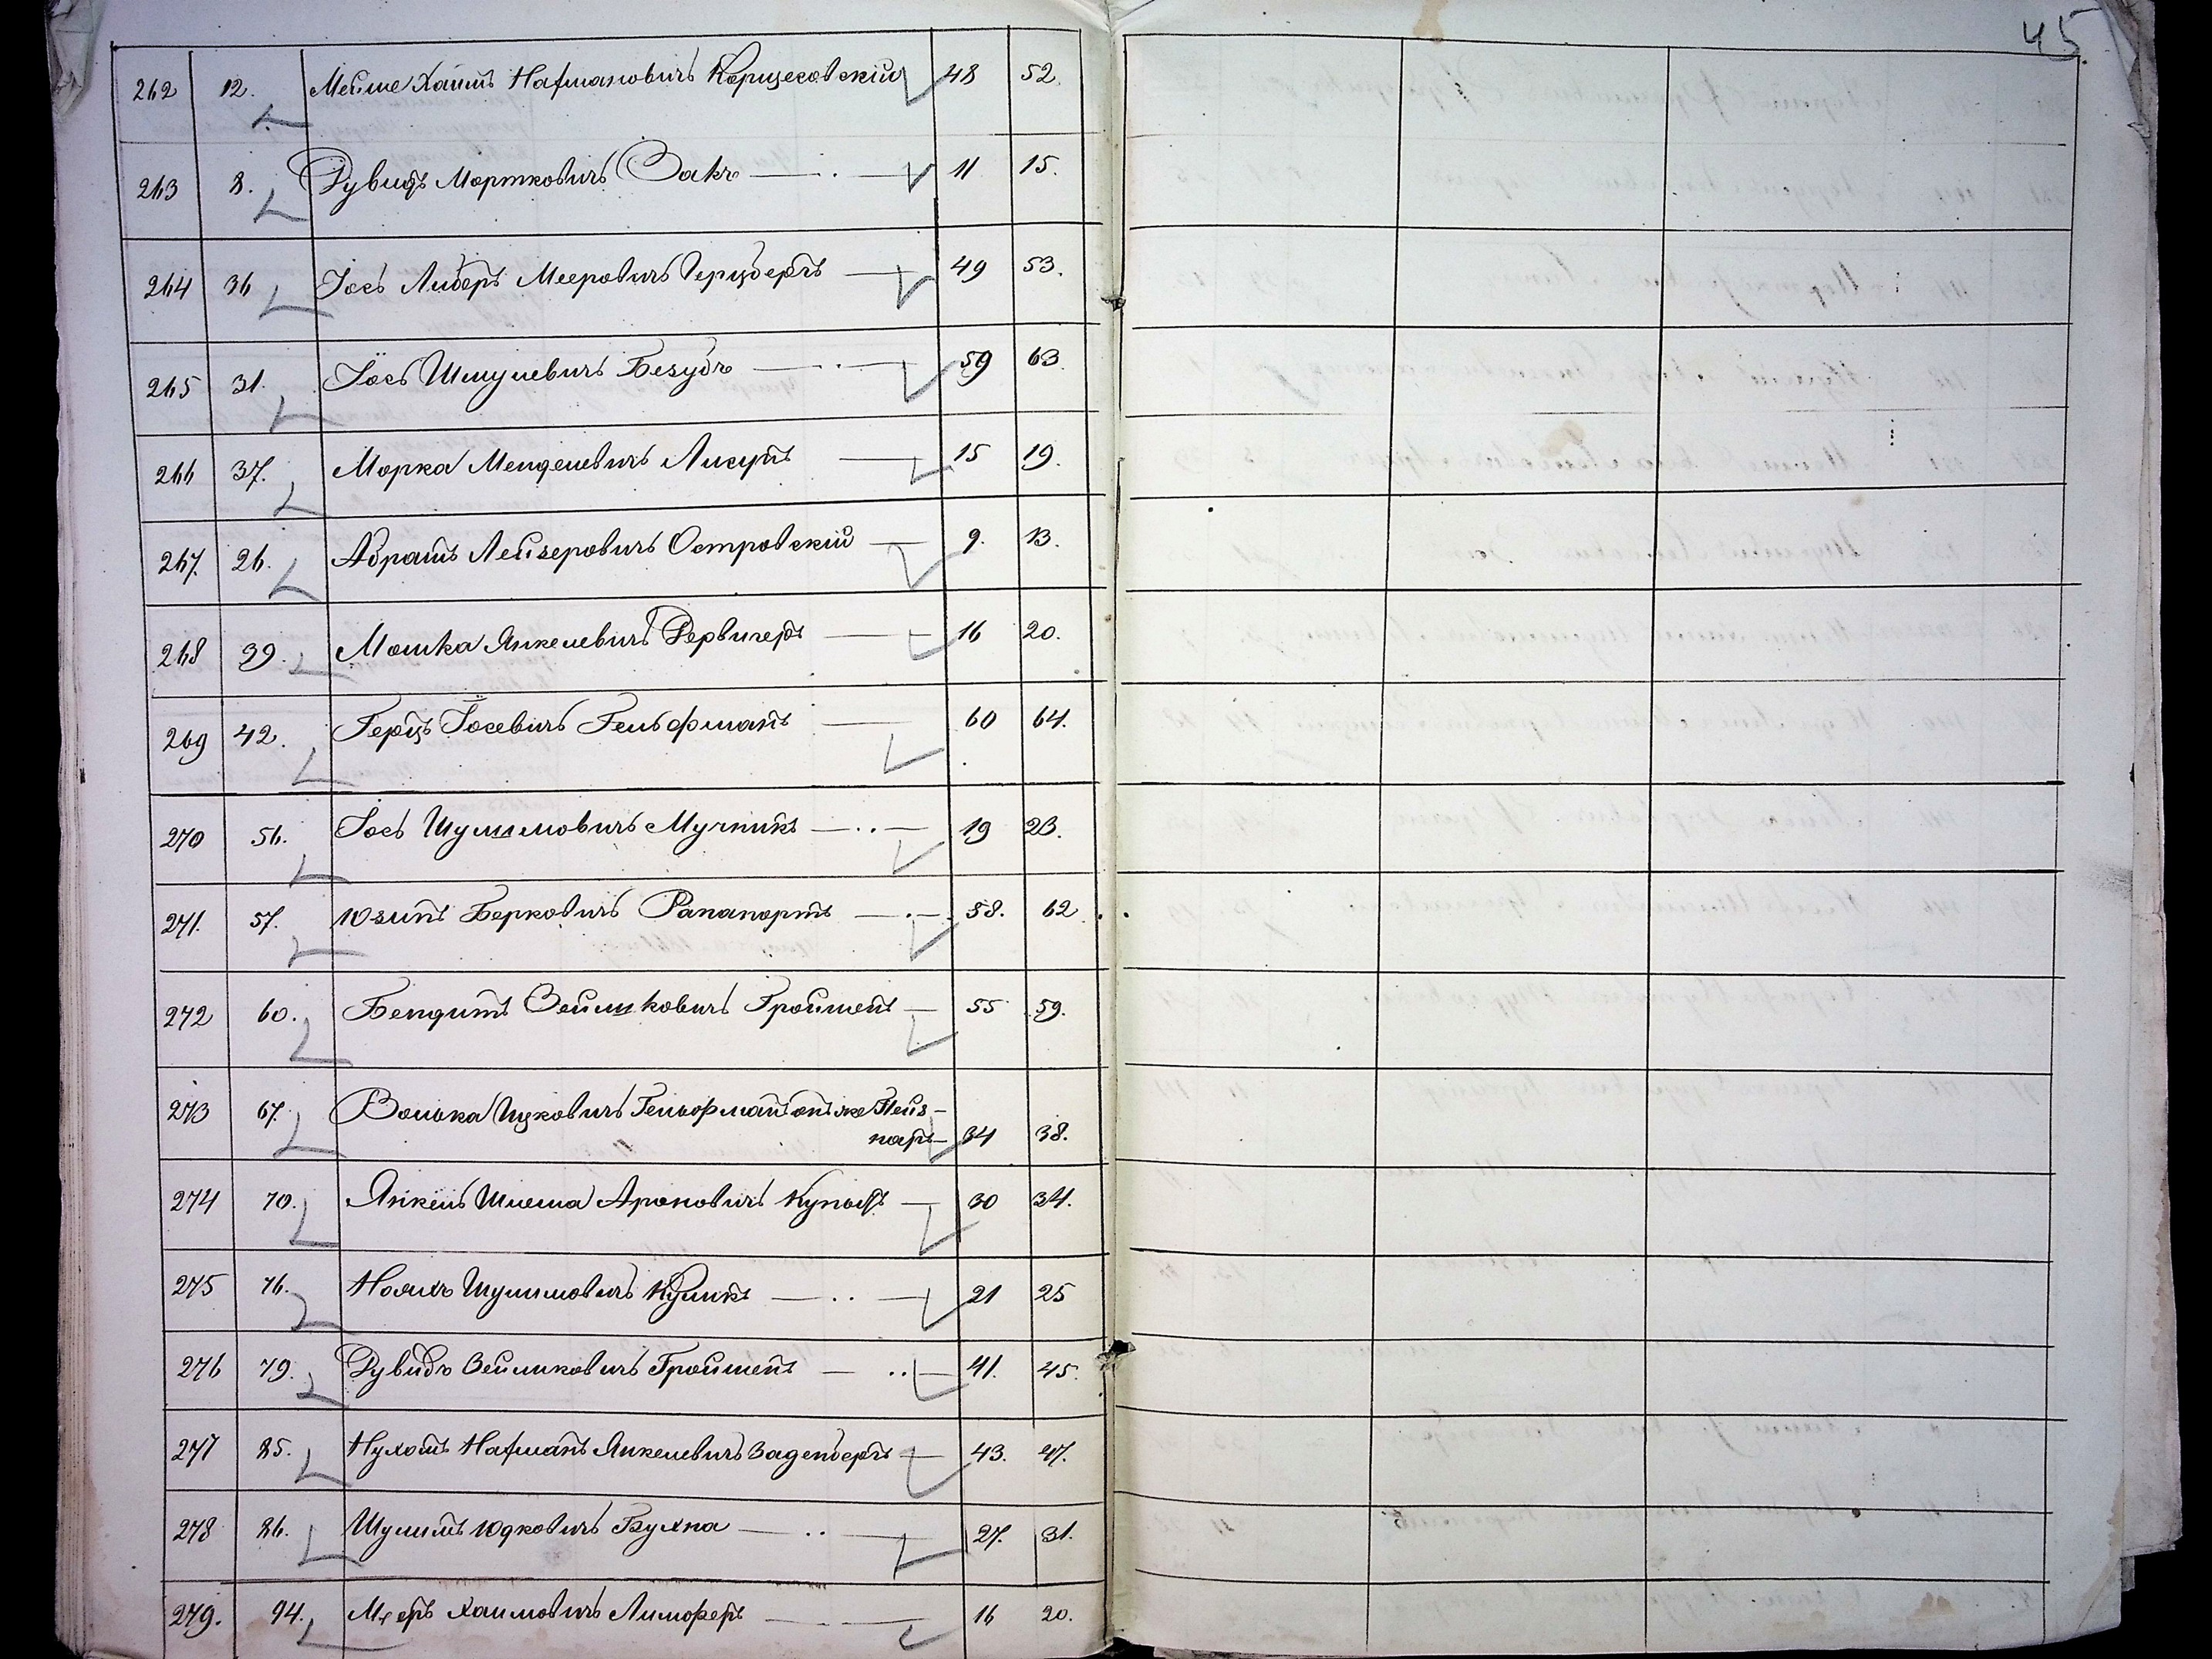 45
262 12. Мейше Хаимъ Нахмановичъ Корщековскій 48 52.
263 8. Рувидъ Мортковичъ Закъ 11 15.
264 36 Іось Либеръ Мееровичъ Герцбергъ 49 53.
265 31. Іось Шмулевичъ Безубъ 59 63.
266 37. Морка Менделевичъ Лисунъ 15 19.
267. 26. Абрамъ Лейзеровичъ Островскій 9. 13.
268 39. Мошка Янкелевичъ Дервичеръ 16 20.
269 42. Герцъ Іосевичъ Гельфманъ 60 64.
270 56. Іось Шулимовичъ Мучникъ 19 23.
271. 57. Юзипъ Берковичъ Рапапортъ 58. 62
272 60. Бендитъ Зеймковичъ Гройшенъ 55 59.
273 67. Волька Ицковичъ Гельфманъ онъ же Пейз-
наръ 34 38.
274 70. Янкель Шлема Ароновичъ 30 34.
275 76. Ноахъ Шулимовичъ Куликъ 21 25
276 79. Рувидъ Зейликовичъ Гройшенъ 41. 45.
277 85. Нухомъ Нахманъ ЯнкелевичъВаденбергъ 43. 47.
278 86. Шулимъ Юдковичъ Бухна 27. 31.
279. 94. Мееръ Хаимовичъ Лимоферъ 16 20.